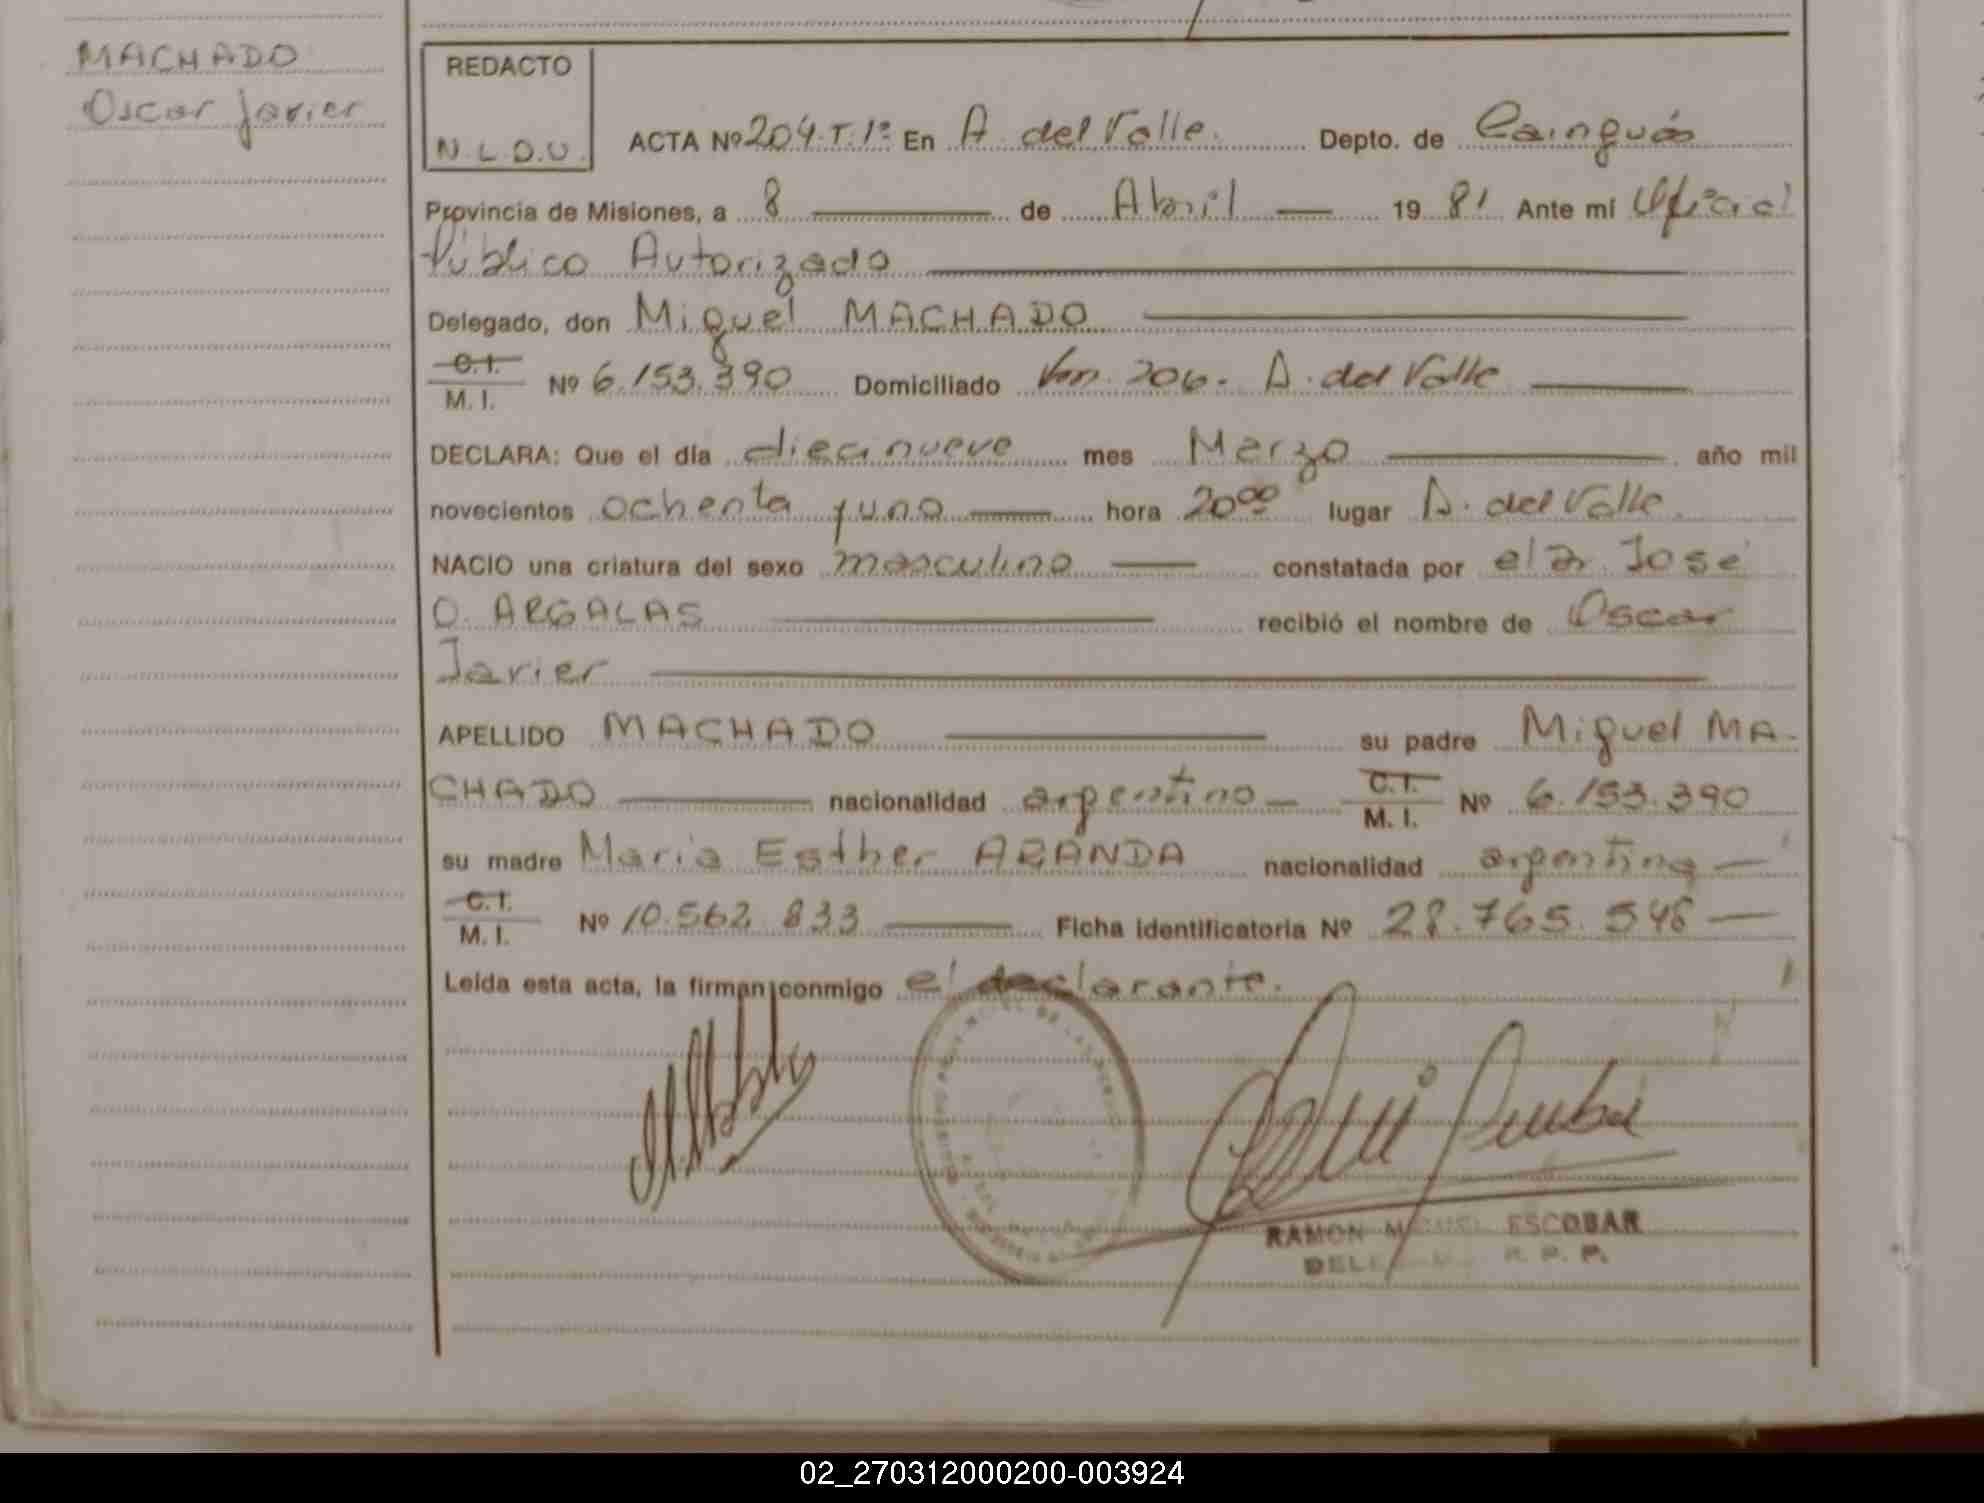 MACHADO
Oscar Javier
REDACTO
N.L.D.U.
ACTA Nº 204.T.1º En A. del Valle. Depto. de Cainguás
Provincia de Misiones, a 8 de Abril 1981 Ante mí Oficial
Público Autorizado
Delegado, don Miguel MACHADO
C.I.
M. I. Nº 6.153.390 Domiciliado 206. A. del Valle
DECLARA: Que el día diecinueve mes Marzo año mil
novecientos ochenta y uno hora 20⁰⁰ lugar A. del Valle.
NACIO una criatura del sexo masculino constatada por el Dr. José
O. ARGALAS recibió el nombre de Oscar
Javier
APELLIDO MACHADO su padre Miguel MA-
CHADO nacionalidad argentino C.I.
M. I. Nº 6.153.390
su madre Maria Esther ARANDA nacionalidad argentina
C.I.
M. I. Nº 10.562.833 Ficha identificatoria Nº 28.765.548
Leída esta acta, la firman conmigo el declarante.
RAMON MIGUEL ESCOBAR
R. P. P.
02_270312000200-003924